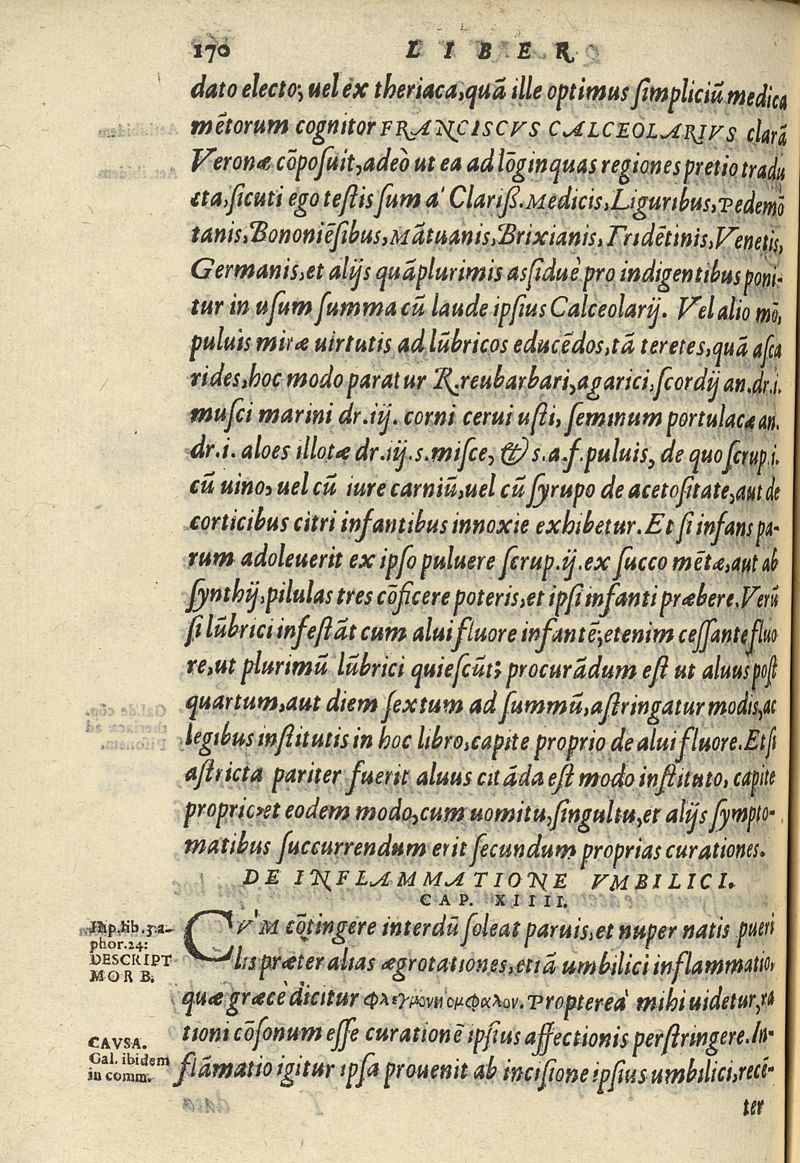 170 LIBER
dato electo, uel ex theriaca, quā ille optimus simpliciū medica
mētorum cognitor FRANCISCVS CALCEOLARIVS clarā
Veronæ cōposuit, adeò ut ea ad lōginquas regiones pretio tradu
cta, sicuti ego testis sum a' Clariß. Medicis, Liguribus, Pedemō
tanis, Bononiēsibus, Mātuanis, Brixianis, Tridētinis, Venetis,
Germanis, et alijs quāplurimis assiduè pro indigentibus poni-
tur in usum summa cū laude ipsius Calceolarij. Vel alio mō,
puluis miræ uirtutis ad lūbricos educēdos, tā teretes, quā asca
rides, hoc modo paratur R. reubarbari, agarici, scordij an. dr. i.
musci marini dr. iij. corni cerui usti, seminum portulacæ an.
dr. i. aloes illotæ dr. iij. s. misce, & s. a. f. puluis, de quo scrup. i.
cū uino, uel cū iure carniū, uel cū syrupo de acetositate, aut de
corticibus citri infantibus innoxie exhibetur. Et si infans pa-
rum adoleuerit ex ipso puluere scrup. ij. ex succo mētæ, aut ab
synthij, pilulas tres cōficere poteris, et ipsi infanti præbere. Verū
si lūbrici infestāt cum alui fluore infantē, etenim cessante fluo
re, ut plurimū lūbrici quiescūt; procurādum est ut aluus post
quartum, aut diem sextum ad summū, astringatur modis, ac
legibus institutis in hoc libro, capite proprio de alui fluore. Et si
astricta pariter fuerit aluus citāda est modo instituto, capite
proprio, et eodem modo, cum uomitu, singultu, et alijs sympto-
matibus succurrendum erit secundum proprias curationes.
DE INFLAMMATIONE VMBILICI.
CAP. XIIII.
Hip. lib. 3. a-
phor. 24:
DESCRIPT
MORB.
CV'M cōtingere interdū soleat paruis, et nuper natis pueri
lis præter alias ægrotationes, etiā umbilici inflammatio,
quæ græcè dicitur φλεγμονη ομφαλον. Propterea' mihi uidetur, ra
tioni cōsonum esse curationē ipsius affectionis perstringere. In-
CAVSA.
Gal. ibidem
in comm.
flāmatio igitur ipsa prouenit ab incisione ipsius umbilici, recē-
ter